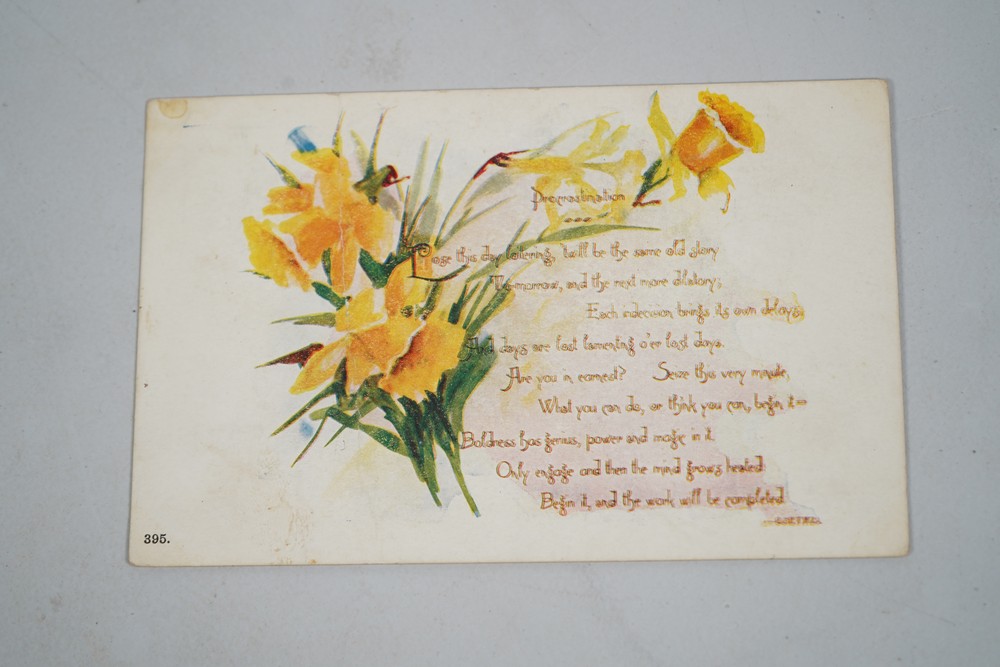 Procrastination
Lose this day loitering, 'twill be the same old story
To-morrow, and the next more dilatory;
Each indecision brings its own delays,
And days are lost lamenting o'er lost days.
Are you in earnest? Seize this very minute,
What you can do, or think you can, begin it=
Boldness has genius, power and magic in it.
Only engage and then the mind grows heated
Begin it, and the work will be completed
GOETHE.
395.